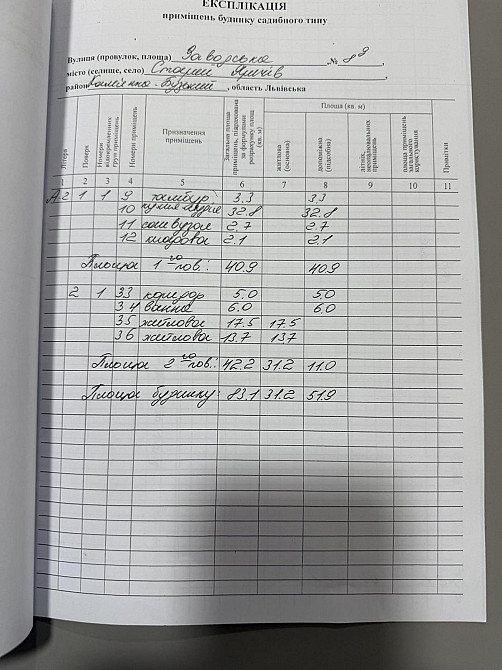 ЕКСПЛІКАЦІЯ
приміщень будинку садибного типу
Вулиця (провулок, площа) Заводська № 8
місто (селище, село) Старий Яричів,
район Камʼянка-Бузький, область Львівська
Літера Поверх Номери відокремлених груп приміщень Номери приміщень Призначення приміщень Загальна площа приміщень, підрахована за формулами розрахунку площ (кв. м) Площа (кв. м) Примітки
житлова (основна) допоміжна (підсобна) літніх, неопалювальних приміщень площа приміщень загального користування
1 2 3 4 5 6 7 8 9 10 11
А-2 1 1 9 тамбур 3.3 3.3
10 кухня 32.8 32.8
11 санвузол 2.7 2.7
12 кладова 2.1 2.1
Площа 1го пов.: 40.9 40.9
2 1 33 коридор 5.0 5.0
34 ванна 6.0 6.0
35 житлова 17.5 17.5
36 житлова 13.7 13.7
Площа 2го пов.: 42.2 31.2 11.0
Площа будинку: 83.1 31.2 51.9